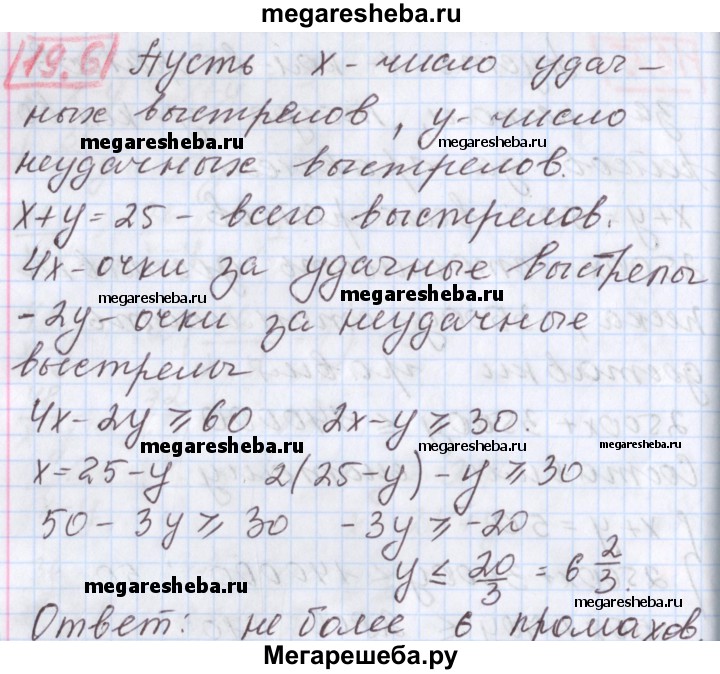 megaresheba.ru
19.6 Пусть x - число удач-
ных выстрелов, y - число
megaresheba.ru megaresheba.ru
неудачных выстрелов.
x+y=25 - всего выстрелов.
4x - очки за удачные выстрелы
megaresheba.ru megaresheba.ru
-2y - очки за неудачные
выстрелы
4x-2y ⩾ 60 2x-y ⩾ 30.
megaresheba.ru megaresheba.ru megaresheba.ru
x=25-y 2(25-y)-y ⩾ 30
50-3y ⩾ 30 -3y ⩾ -20
y ≤ 20/3 = 6 2/3.
megaresheba.ru megaresheba.ru megaresheba.ru
Ответ: не более 6 промахов.
Мегарешеба.ру